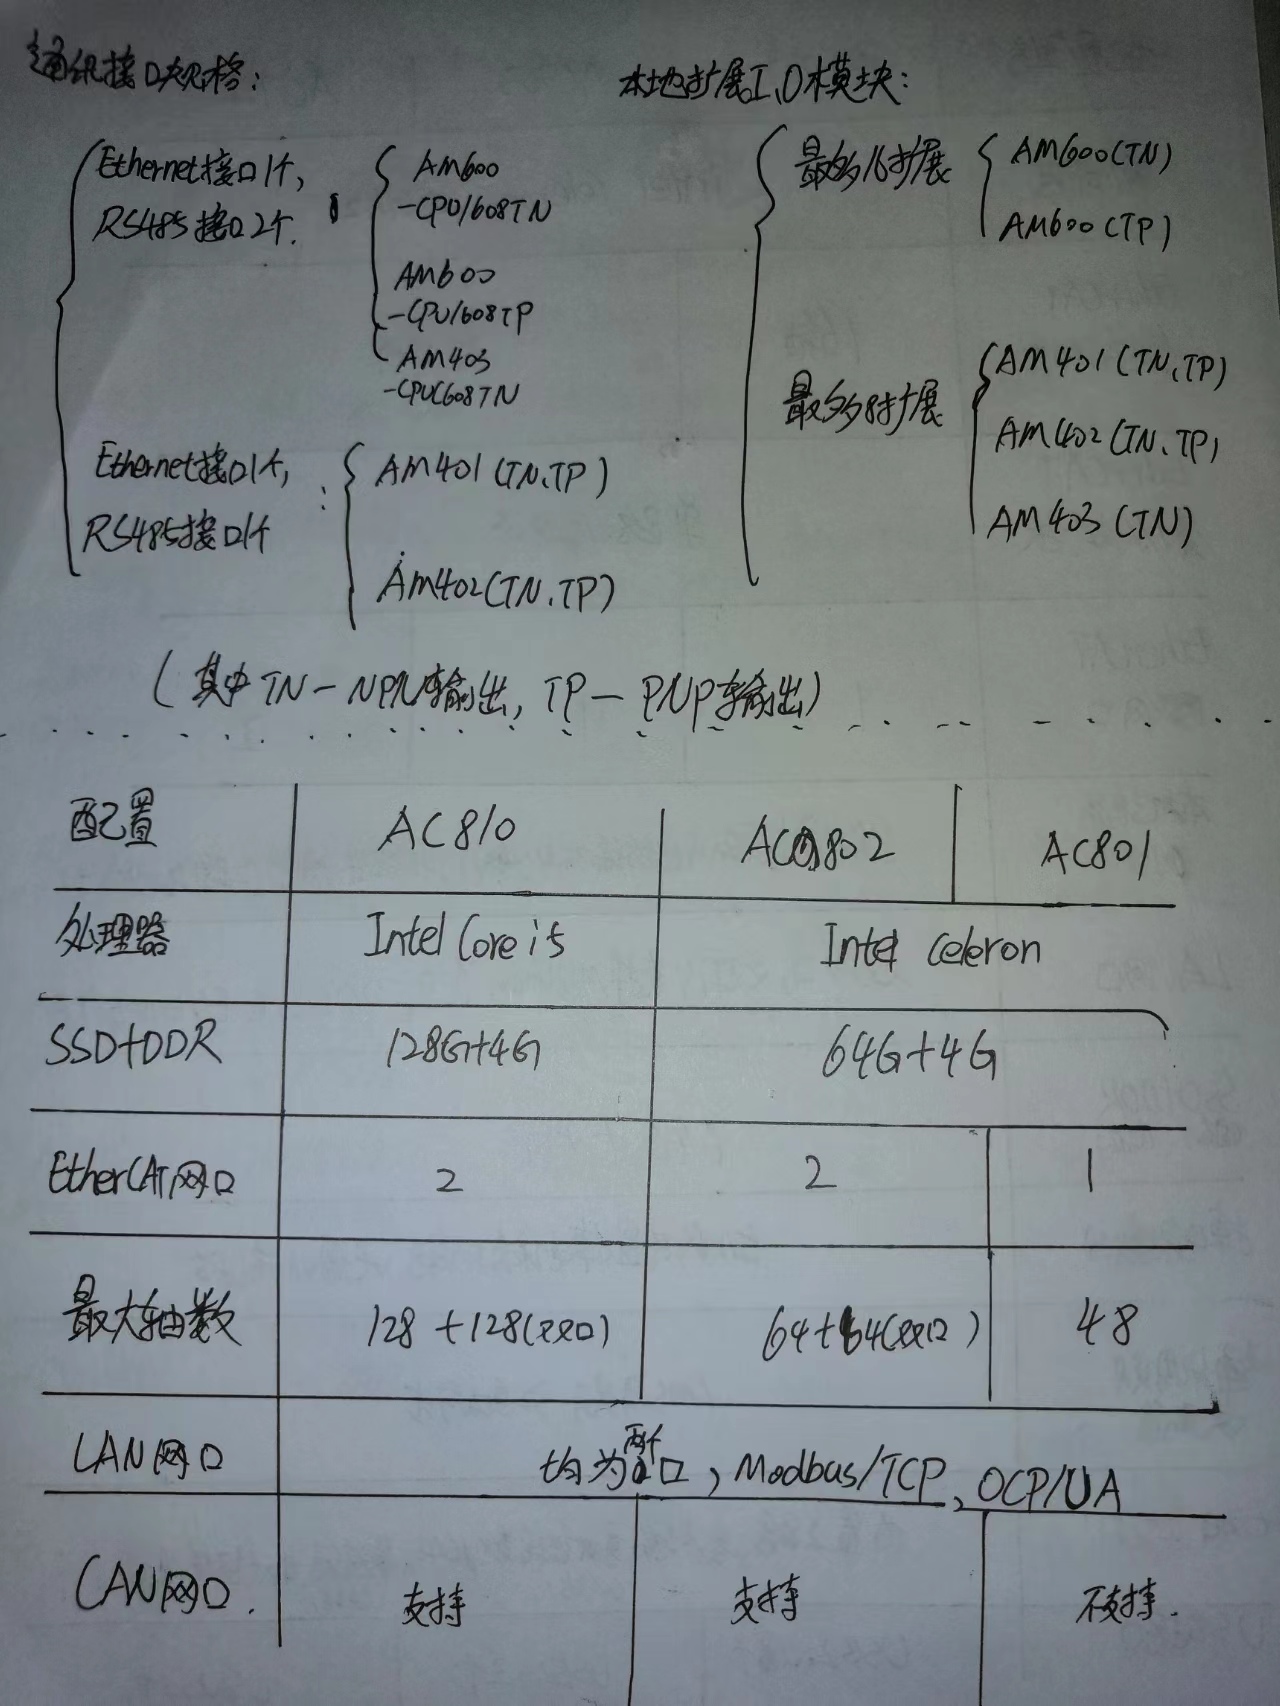 通讯接口规格:
Ethernet接口1个,
RS485接口2个.
AM600
-CPU1608TN
AM600
-CPU1608TP
AM403
-CPU1608TN
Ethernet接口1个,
RS485接口1个
:
AM401(TN、TP)
AM402(TN、TP)
本地扩展I、O模块:
最多16扩展
AM600(TN)
AM600(TP)
最多8扩展
AM401(TN、TP)
AM402(TN、TP)
AM403(TN)
(其中TN-NPN输出, TP-PNP输出)
配置 AC810 AC802 AC801
处理器 Intel Core i5 Intel Celeron
SSD+DDR 128G+4G 64G+4G
EtherCAT网口 2 2 1
最大轴数 128+128(双网口) 64+64(双网口) 48
LAN网口 均为两个口, Modbus/TCP、OCP/UA
CAN网口. 支持 支持 不支持.